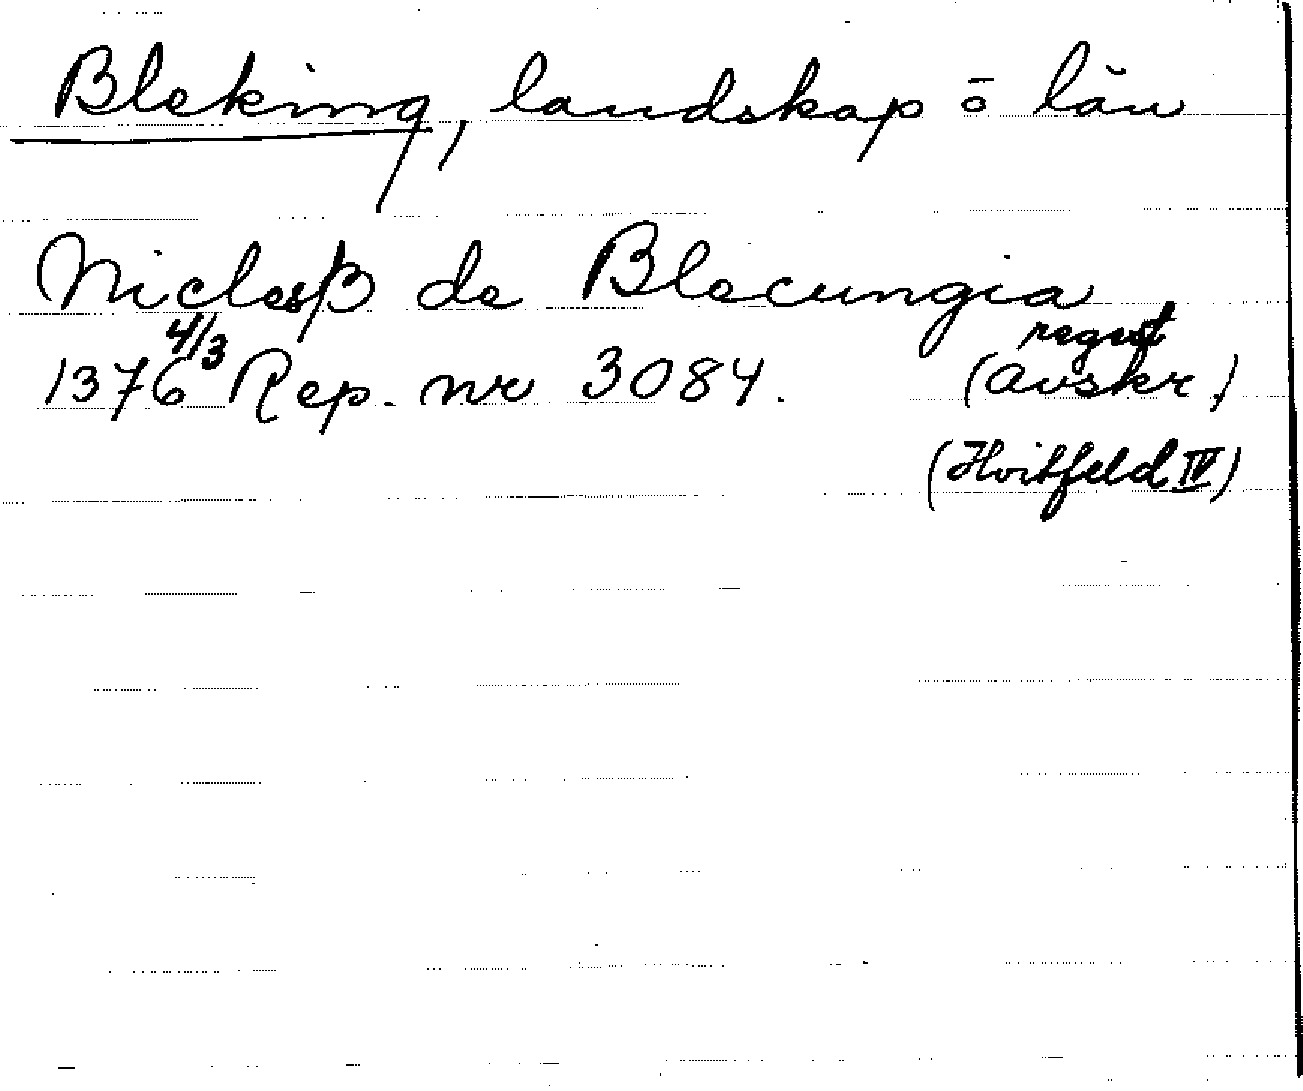 Bleking, landskap o län
Niclesß de Blecungia
1376 4/3 Rep. nr 3084. (avskr.)
(Hvitfeld IV)